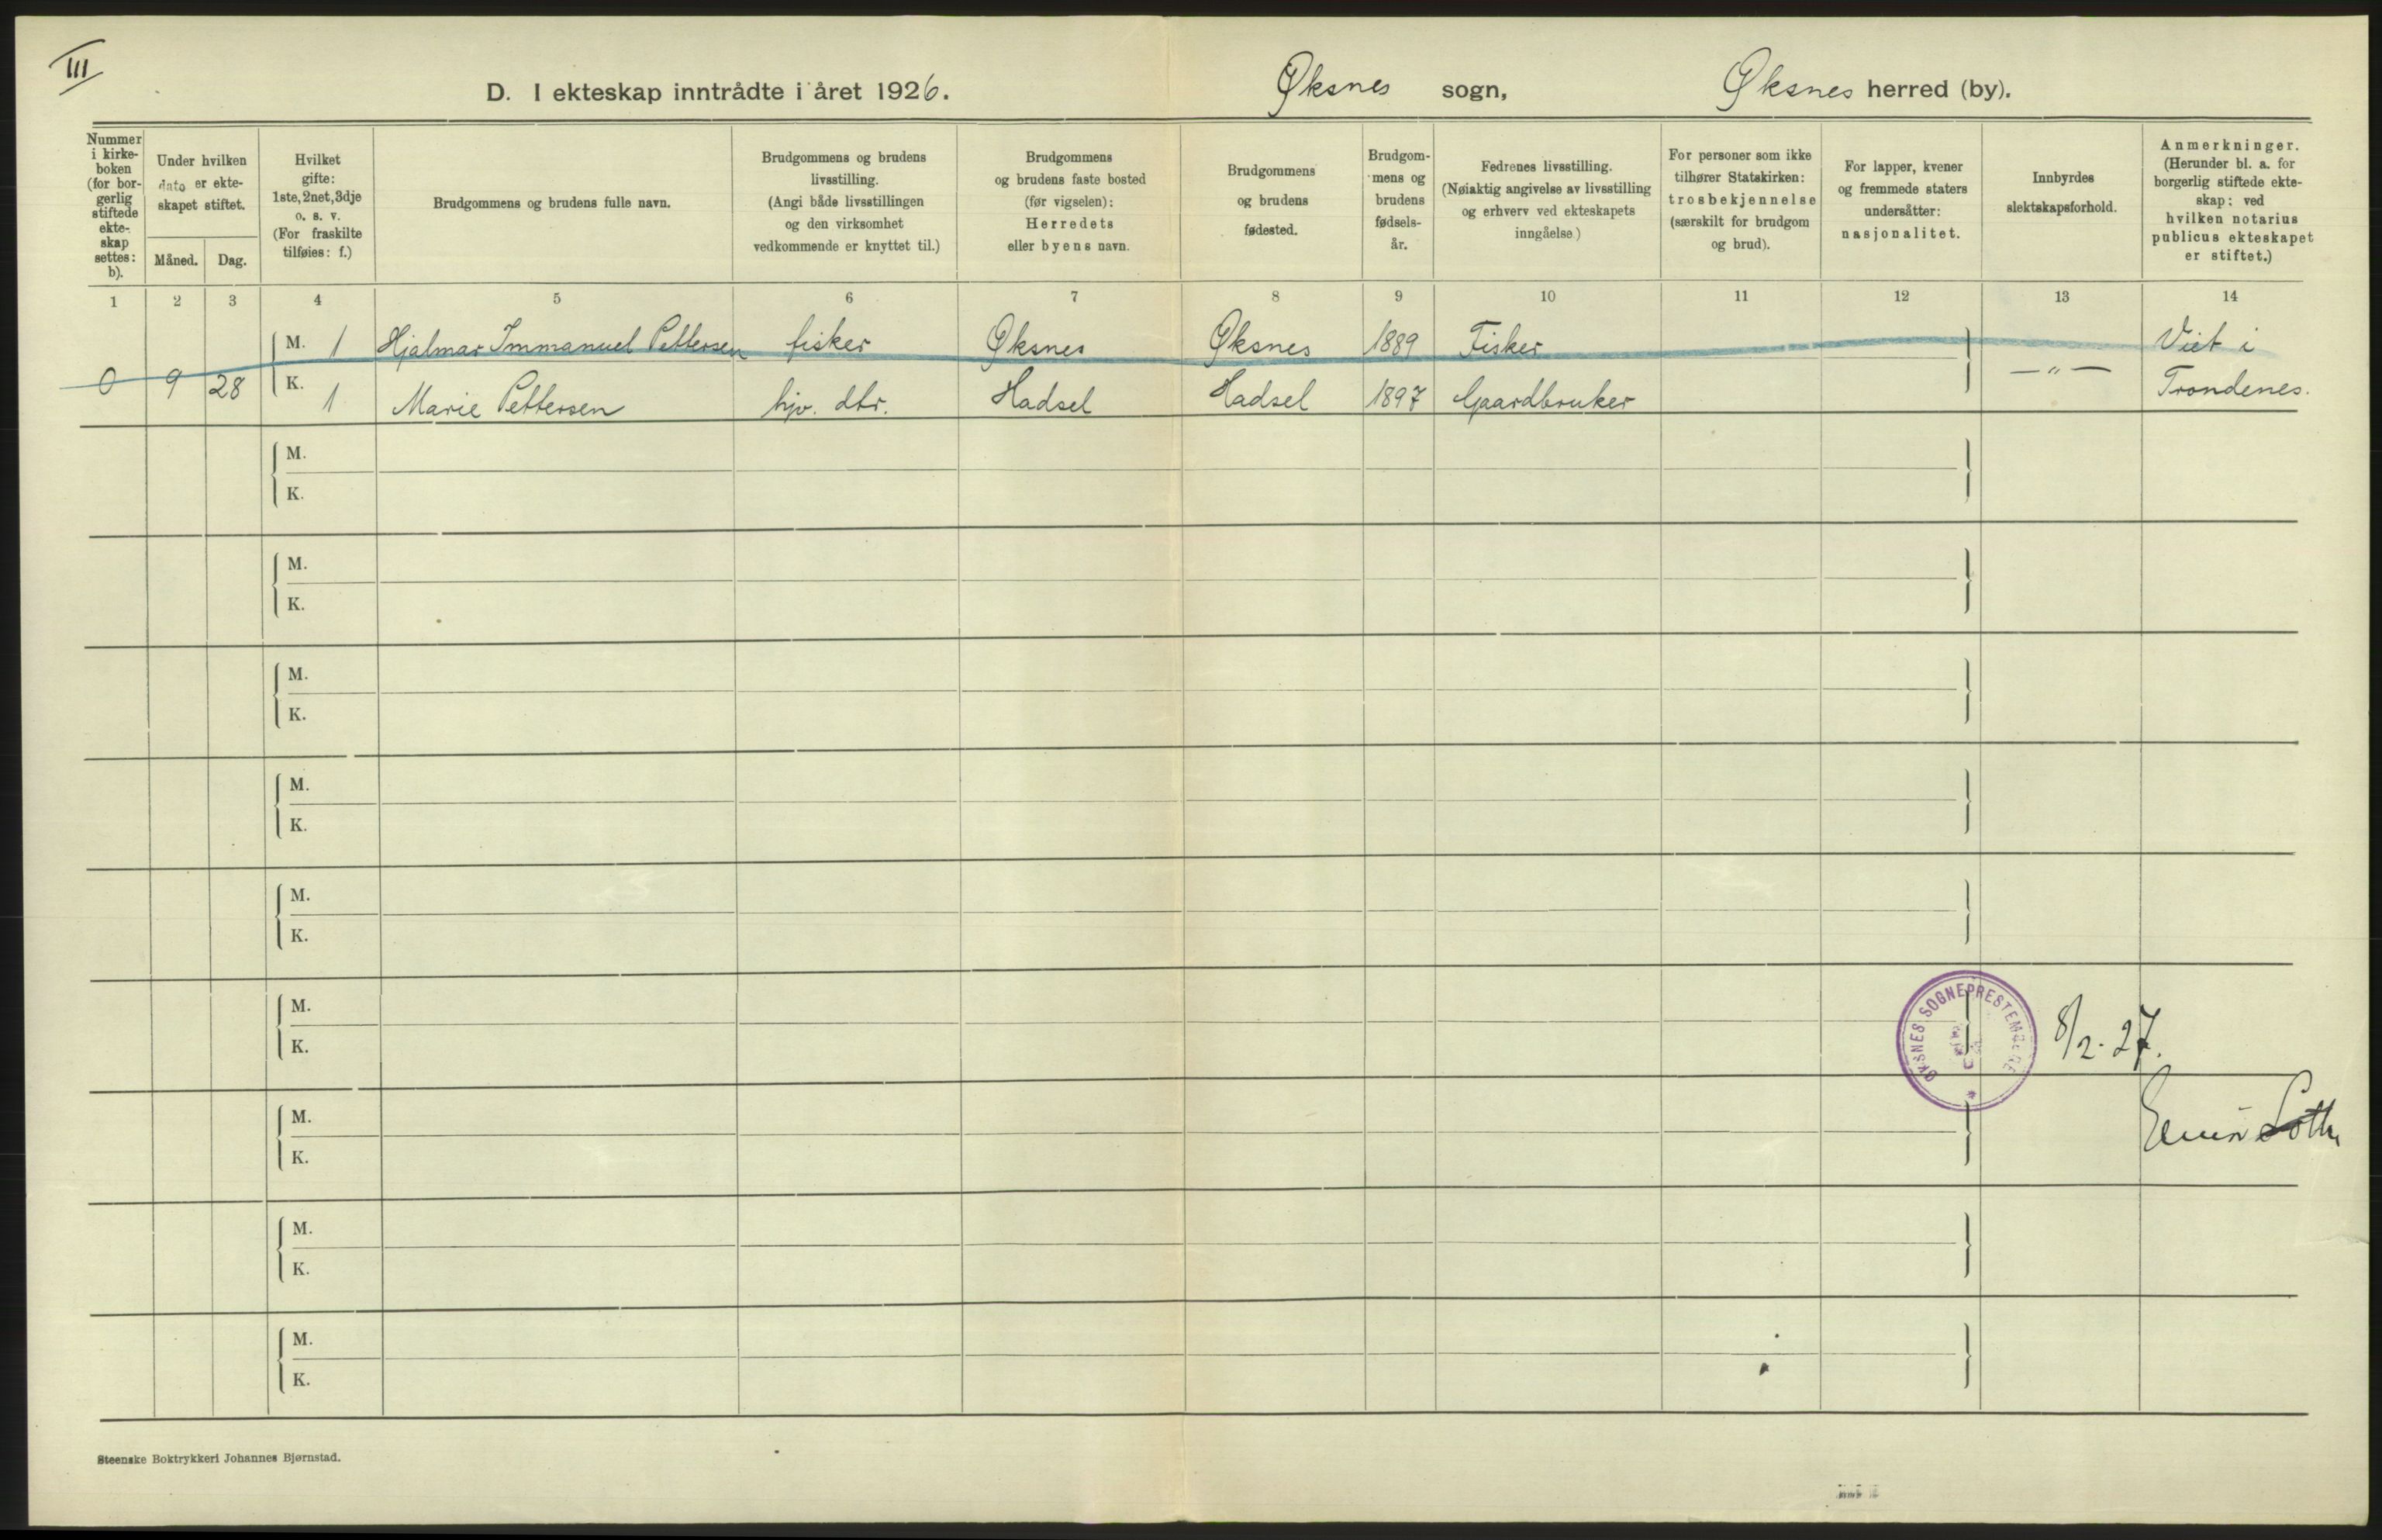 III
D. I ekteskap inntrådte i året 1926. Øksnes sogn, Øksnes herred (by).
Nummer
i kirke-
boken
(for bor-
gerlig
stiftede
ekte-
skap
settes:
b).
Under hvilken
dato er ekte-
skapet stiftet.
Måned. Dag.
Hvilket
gifte:
1ste, 2net, 3dje
o. s. v.
(For fraskilte
tilføies: f.)
Brudgommens og brudens fulle navn.
Brudgommens og brudens
livsstilling.
(Angi både livsstillingen
og den virksomhet
vedkommende er knyttet til.)
Brudgommens
og brudens faste bosted
(før vigselen):
Herredets
eller byens navn.
Brudgommens
og brudens
fødested.
Brudgom-
mens og
brudens
fødsels-
år.
Fedrenes livsstilling.
(Nøiaktig angivelse av livsstilling
og erhverv ved ekteskapets
inngåelse)
For personer som ikke
tilhører Statskirken:
trosbekjennelse
(særskilt for brudgom
og brud).
For lapper, kvener
og fremmede staters
undersåtter:
nasjonalitet.
Innbyrdes
slektskapsforhold.
Anmerkninger.
(Herunder bl. a. for
borgerlig stiftede ekte-
skap: ved
hvilken notarius
publicus ekteskapet
er stiftet.)
1 2 3 4 5 6 7 8 9 10 11 12 13 14
M. 1 Hjalmar Immanuel Pettersen fisker Øksnes Øksnes 1889 Fisker Viet i
0 9 28 K. 1 Marie Pettersen hjv. dtr. Hadsel Hadsel 1897 Gaardbruker — " — Trondenes.
M.
K.
M.
K.
M.
K.
M.
K.
M.
K.
M.
K.
M.
K.
M.
K.
M.
K.
ØKSNES SOGNEPRESTEMBEDE
8/2. 27.
Steenske Boktrykkeri Johannes Bjørnstad.